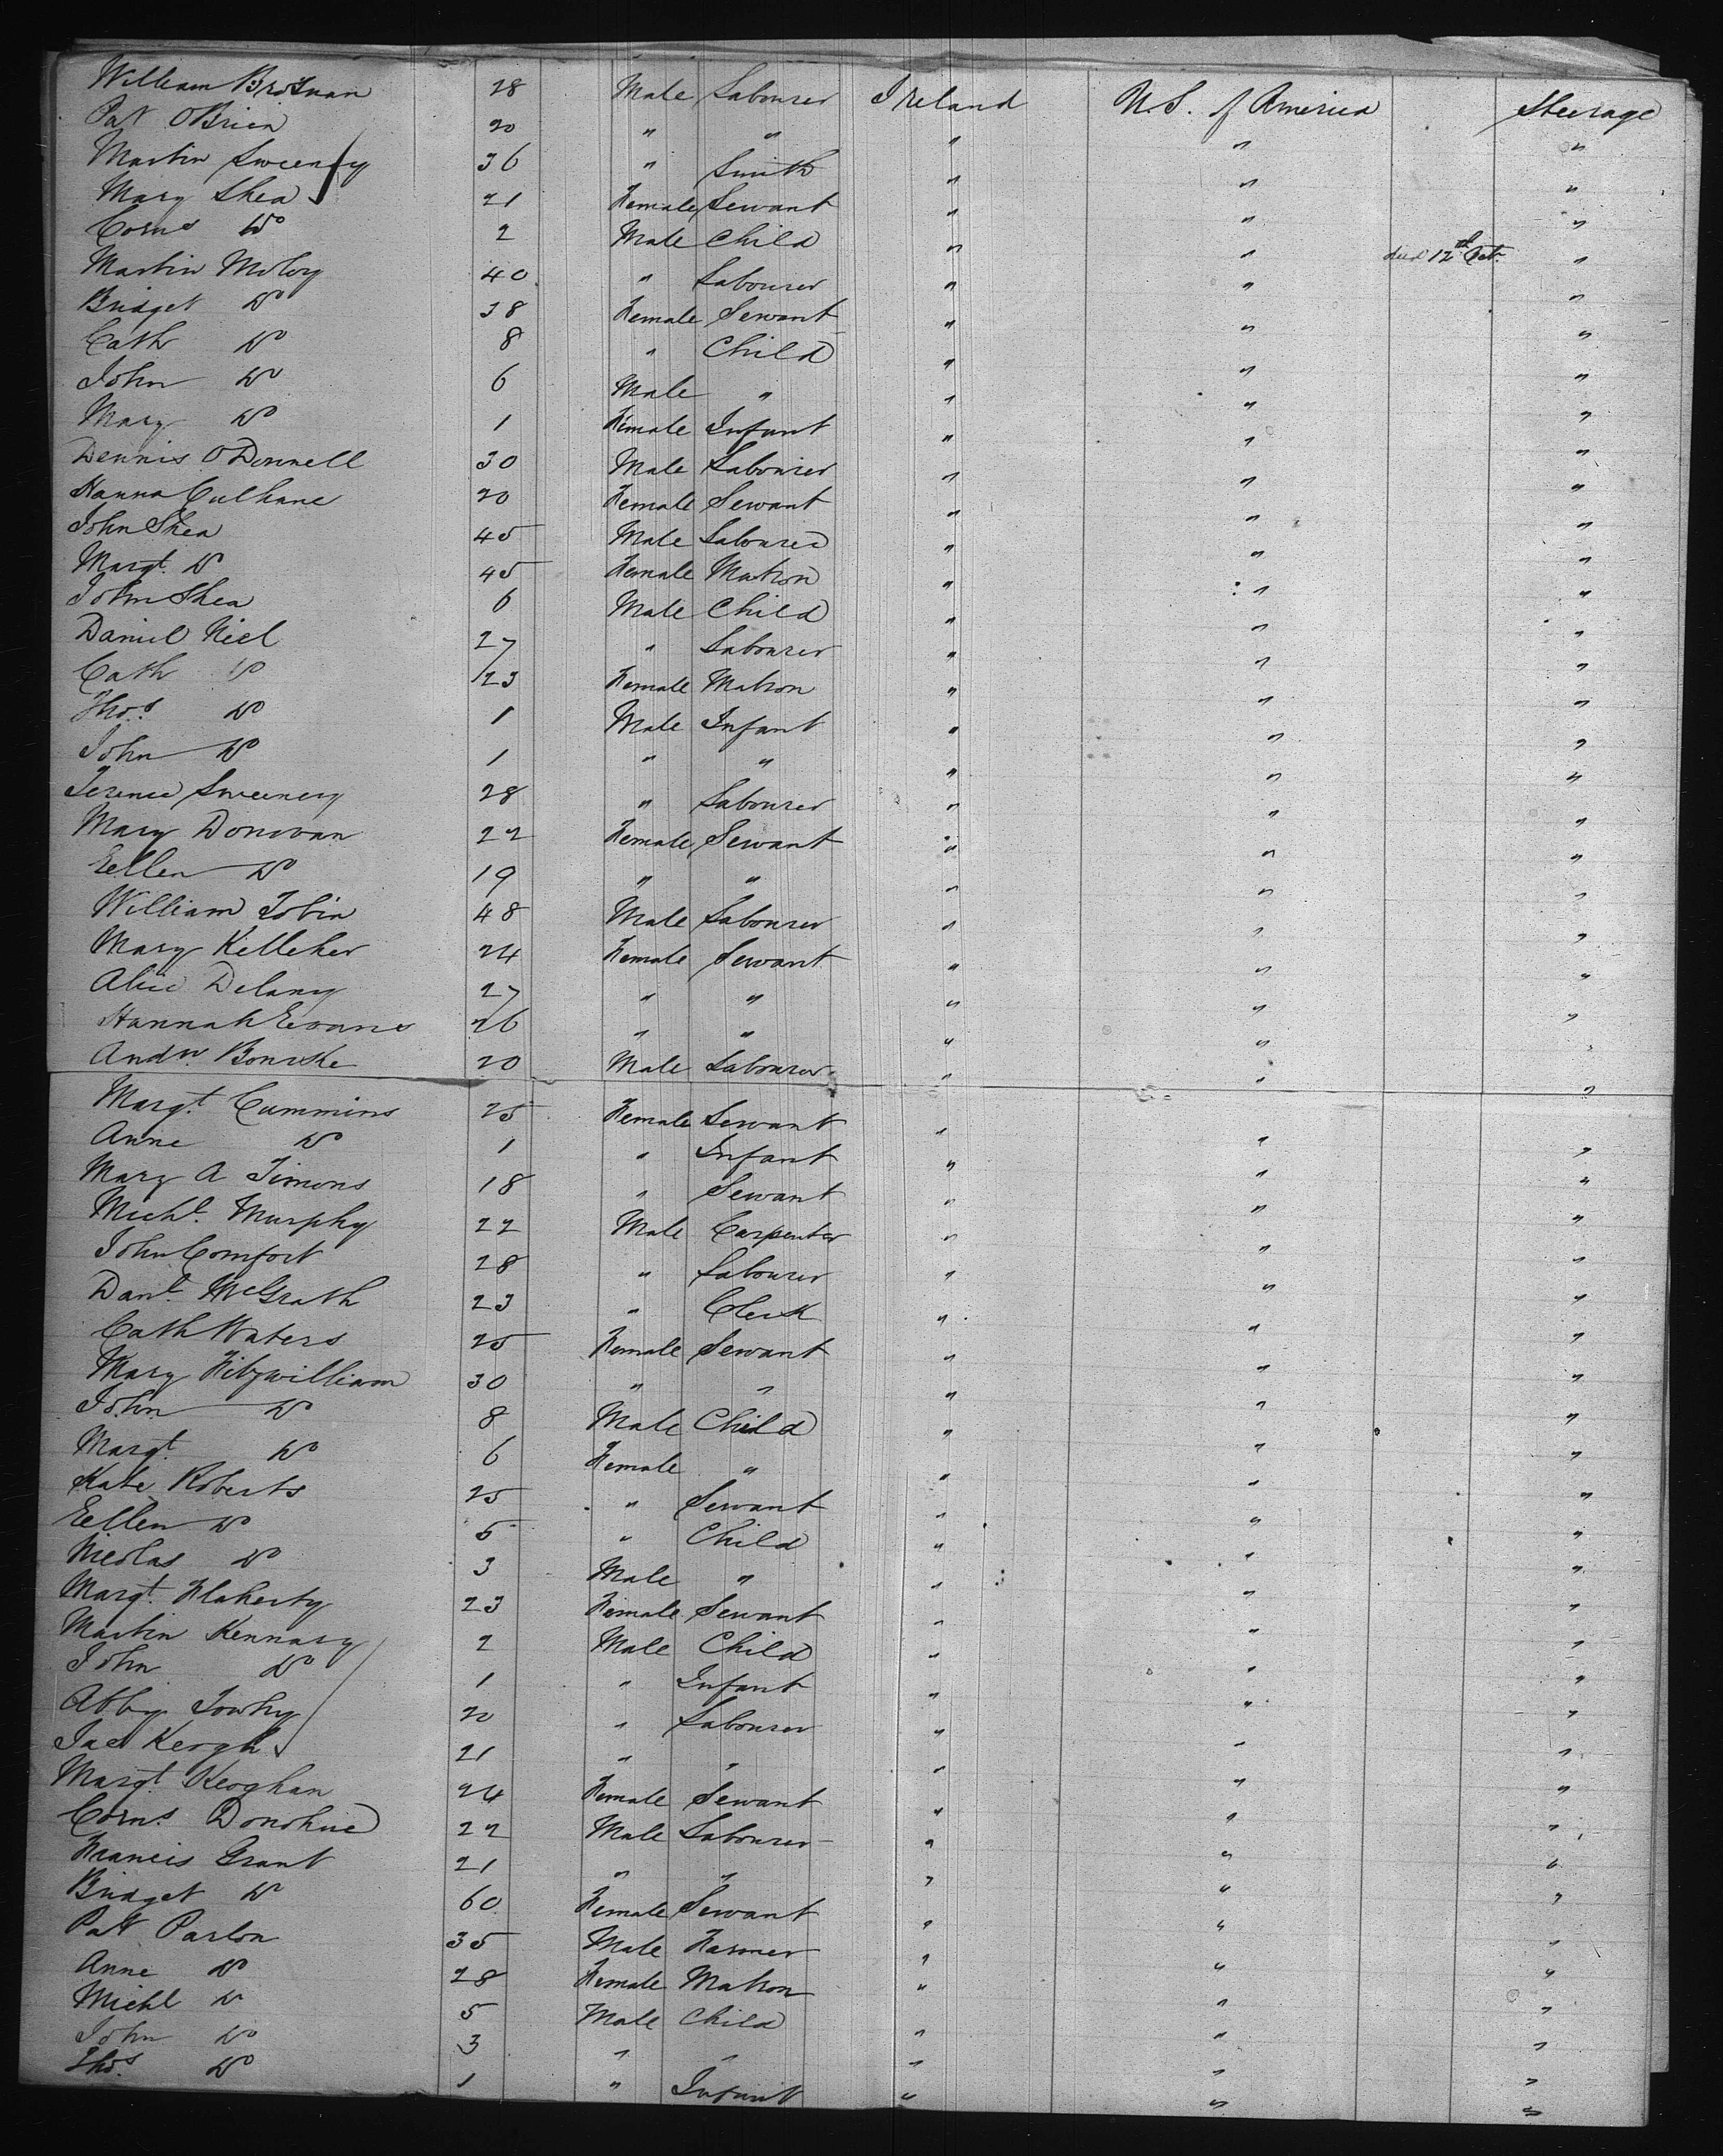 William Brosnan 28 Male Labourer Ireland U.S. of America Steerage
Pat OBrien 20 " " " " "
Martin Sweeney 36 " Smith " " "
Mary Shea 21 Female Servant " " "
Corns Do 2 Male Child " " died 12th Oct. "
Martin Moloy 40 " Labourer " " "
Bridget Do 38 Female Servant " " "
Cath Do 8 " Child " " "
John Do 6 Male " " " "
Mary Do 1 Female Infant " " "
Dennis ODonnell 30 Male Labourer " " "
Hanna Culhane 20 Female Servant " " "
John Shea 45 Male Labourer " " "
Margt. Do 45 Female Matron " " "
John Shea 6 Male Child " " "
Daniel Niel 27 " Labourer " " "
Cath Do 23 Female Matron " " "
Thos. Do 1 Male Infant " " "
John Do 1 " " " " "
Terence Sweeney 28 " Labourer " " "
Mary Donovan 22 Female Servant " " "
Eellen Do 19 " " " " "
William Tobin 48 Male Labourer " " "
Mary Kelleher 24 Female Servant " " "
Alice Delany 27 " " " " "
Hannah Eevans 26 " " " " "
Andw. Bourke 20 Male Labourer " " "
Margt. Cummins 25 Female Servant " " "
Anne Do 1 " Infant " " "
Mary A Timons 18 " Servant " " "
Michl. Murphy 22 Male Carpenter " " "
John Comfort 28 " Labourer " " "
Danl. McGrath 23 " Clerk " " "
Cath Waters 25 Female Servant " " "
Mary Fitzwilliam 30 " " " " "
John Do 8 Male Child " " "
Margt. Do 6 Female " " " "
Kate Roberts 25 " Servant " " "
Eellen Do 5 " Child " " "
Nicolas Do 3 Male " " " "
Margt. Flaherty 23 Female Servant " " "
Martin Kennary 2 Male Child " " "
John Do 1 " Infant " " "
Abby 20 " Labourer " " "
Jas Keogh 21 " " " " "
Margt. Keoghan 24 Female Servant " " "
Corns. Donohue 22 Male Labourer " " "
Francis Grant 21 " " " " "
Bridget Do 60 Female Servant " " "
Pat Parlon 35 Male Farmer " " "
Anne Do 28 Female Matron " " "
Michl Do 5 Male Child " " "
John Do 3 " " " " "
Thos. Do 1 " Infant " " "